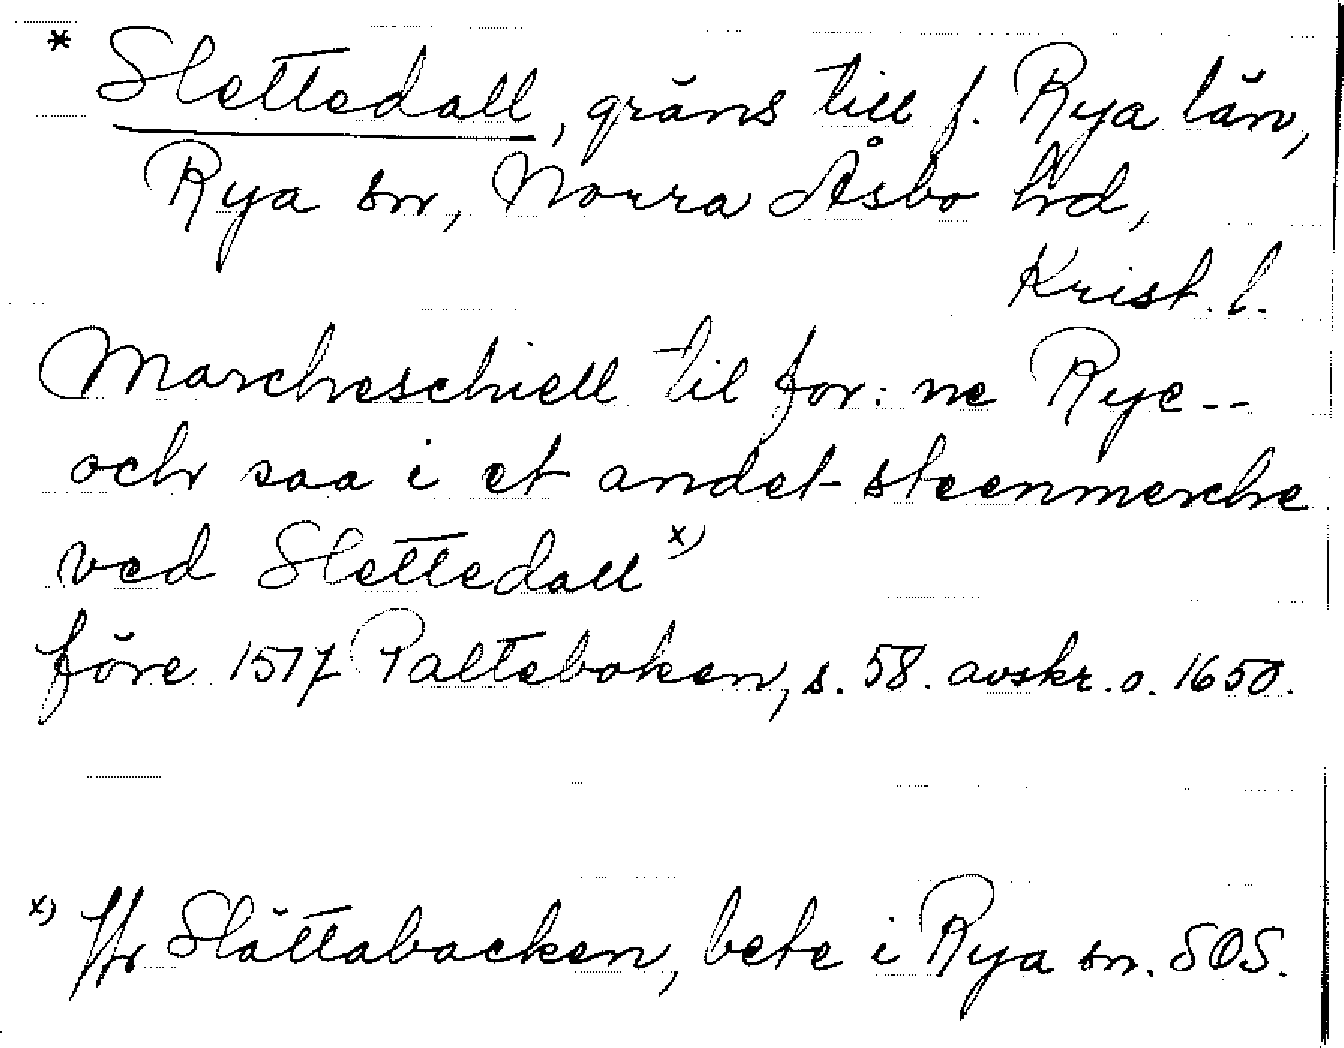 * Slettedall, gräns till f. Rya län,
Rya sn, Norra Åsbo hd,
Krist. l.
Marcheschiell til for: ne Rye--
och saa i et andet steenmerche
ved Slettedall x)
före 1577 Palteboken, s. 58. avskr. o. 1650.
x) Jfr Slättabacken, bete i Rya sn. SOS.